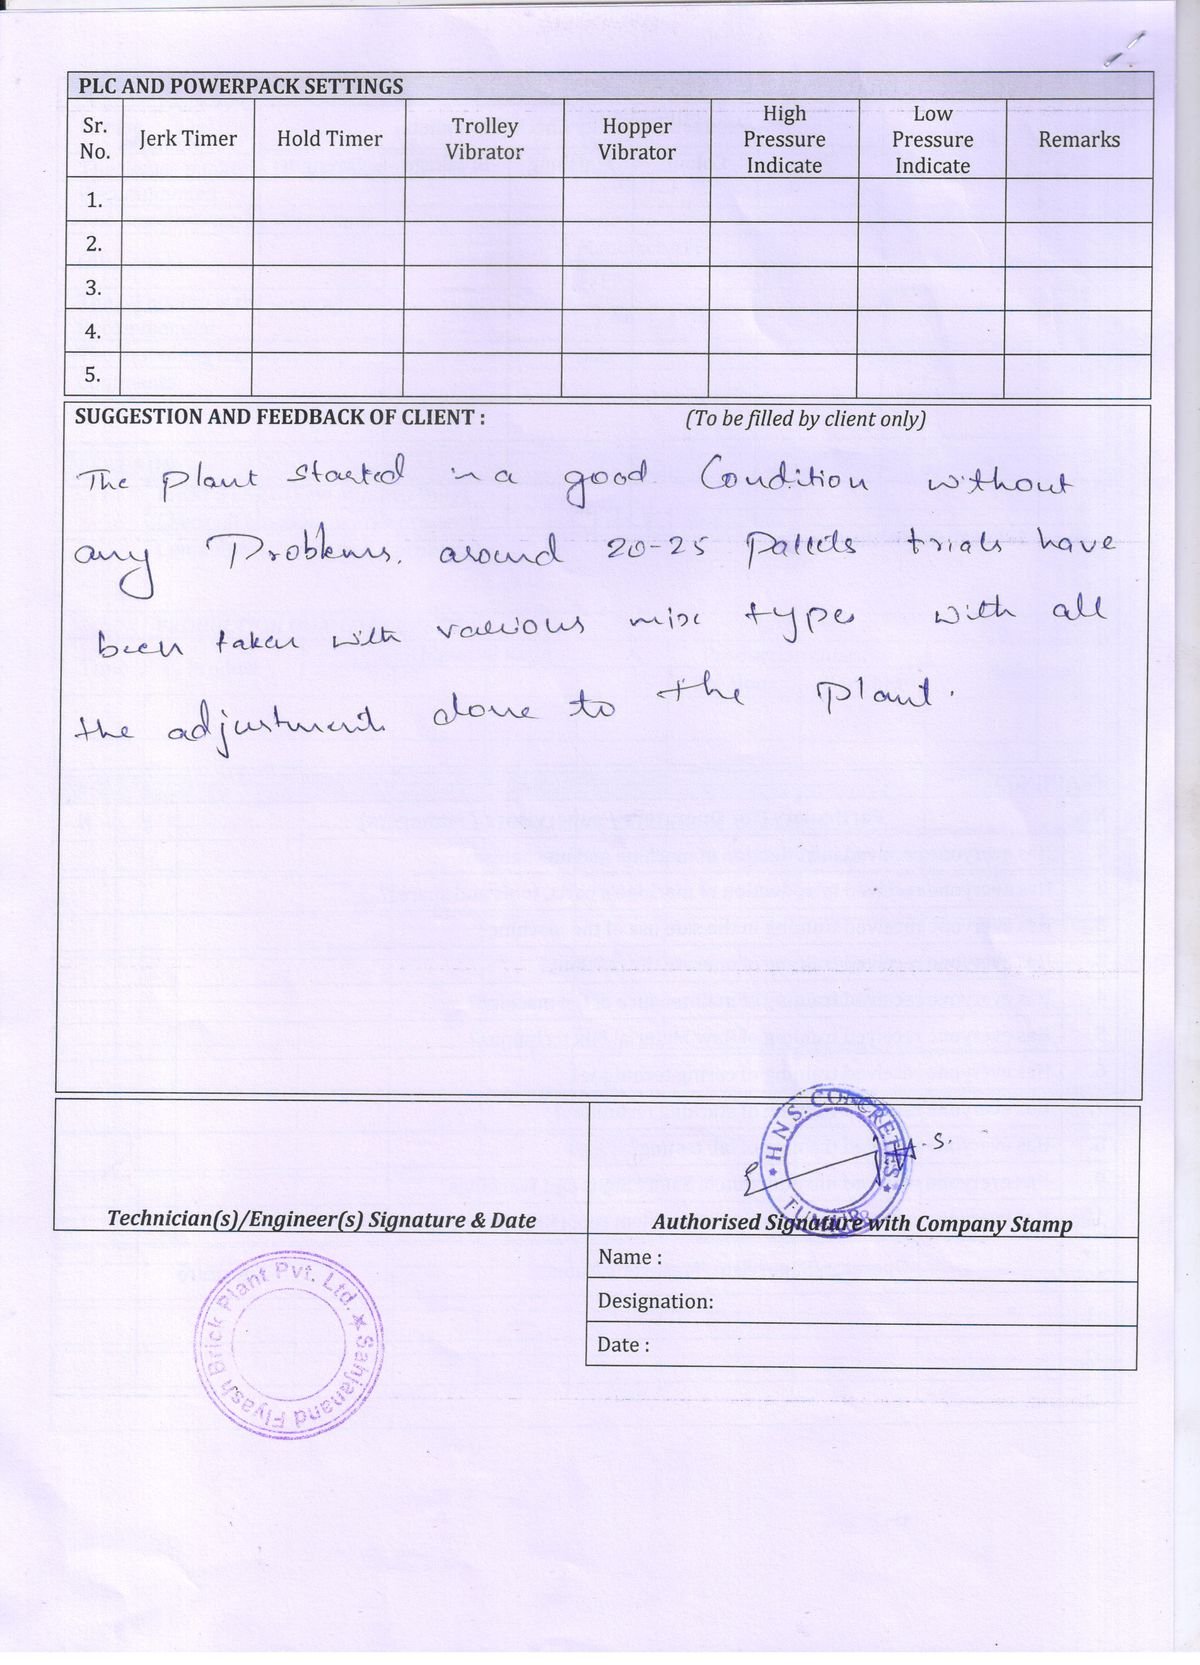 PLC AND POWERPACK SETTINGS
Sr. No. Jerk Timer Hold Timer Trolley Vibrator Hopper Vibrator High Pressure Indicate Low Pressure Indicate Remarks
1.
2.
3.
4.
5.
SUGGESTION AND FEEDBACK OF CLIENT : (To be filled by client only)
The plant started in a good Condition without
any Problems. around 20-25 Pallets trials have
been taken with various mix types with all
the adjustments done to the plant.
H.N.S. CONCRETES
A.S.
Technician(s)/Engineer(s) Signature & Date
Authorised Signature with Company Stamp
Name :
Designation:
Date :
Sahjanand Flyash Brick Plant Pvt. Ltd.